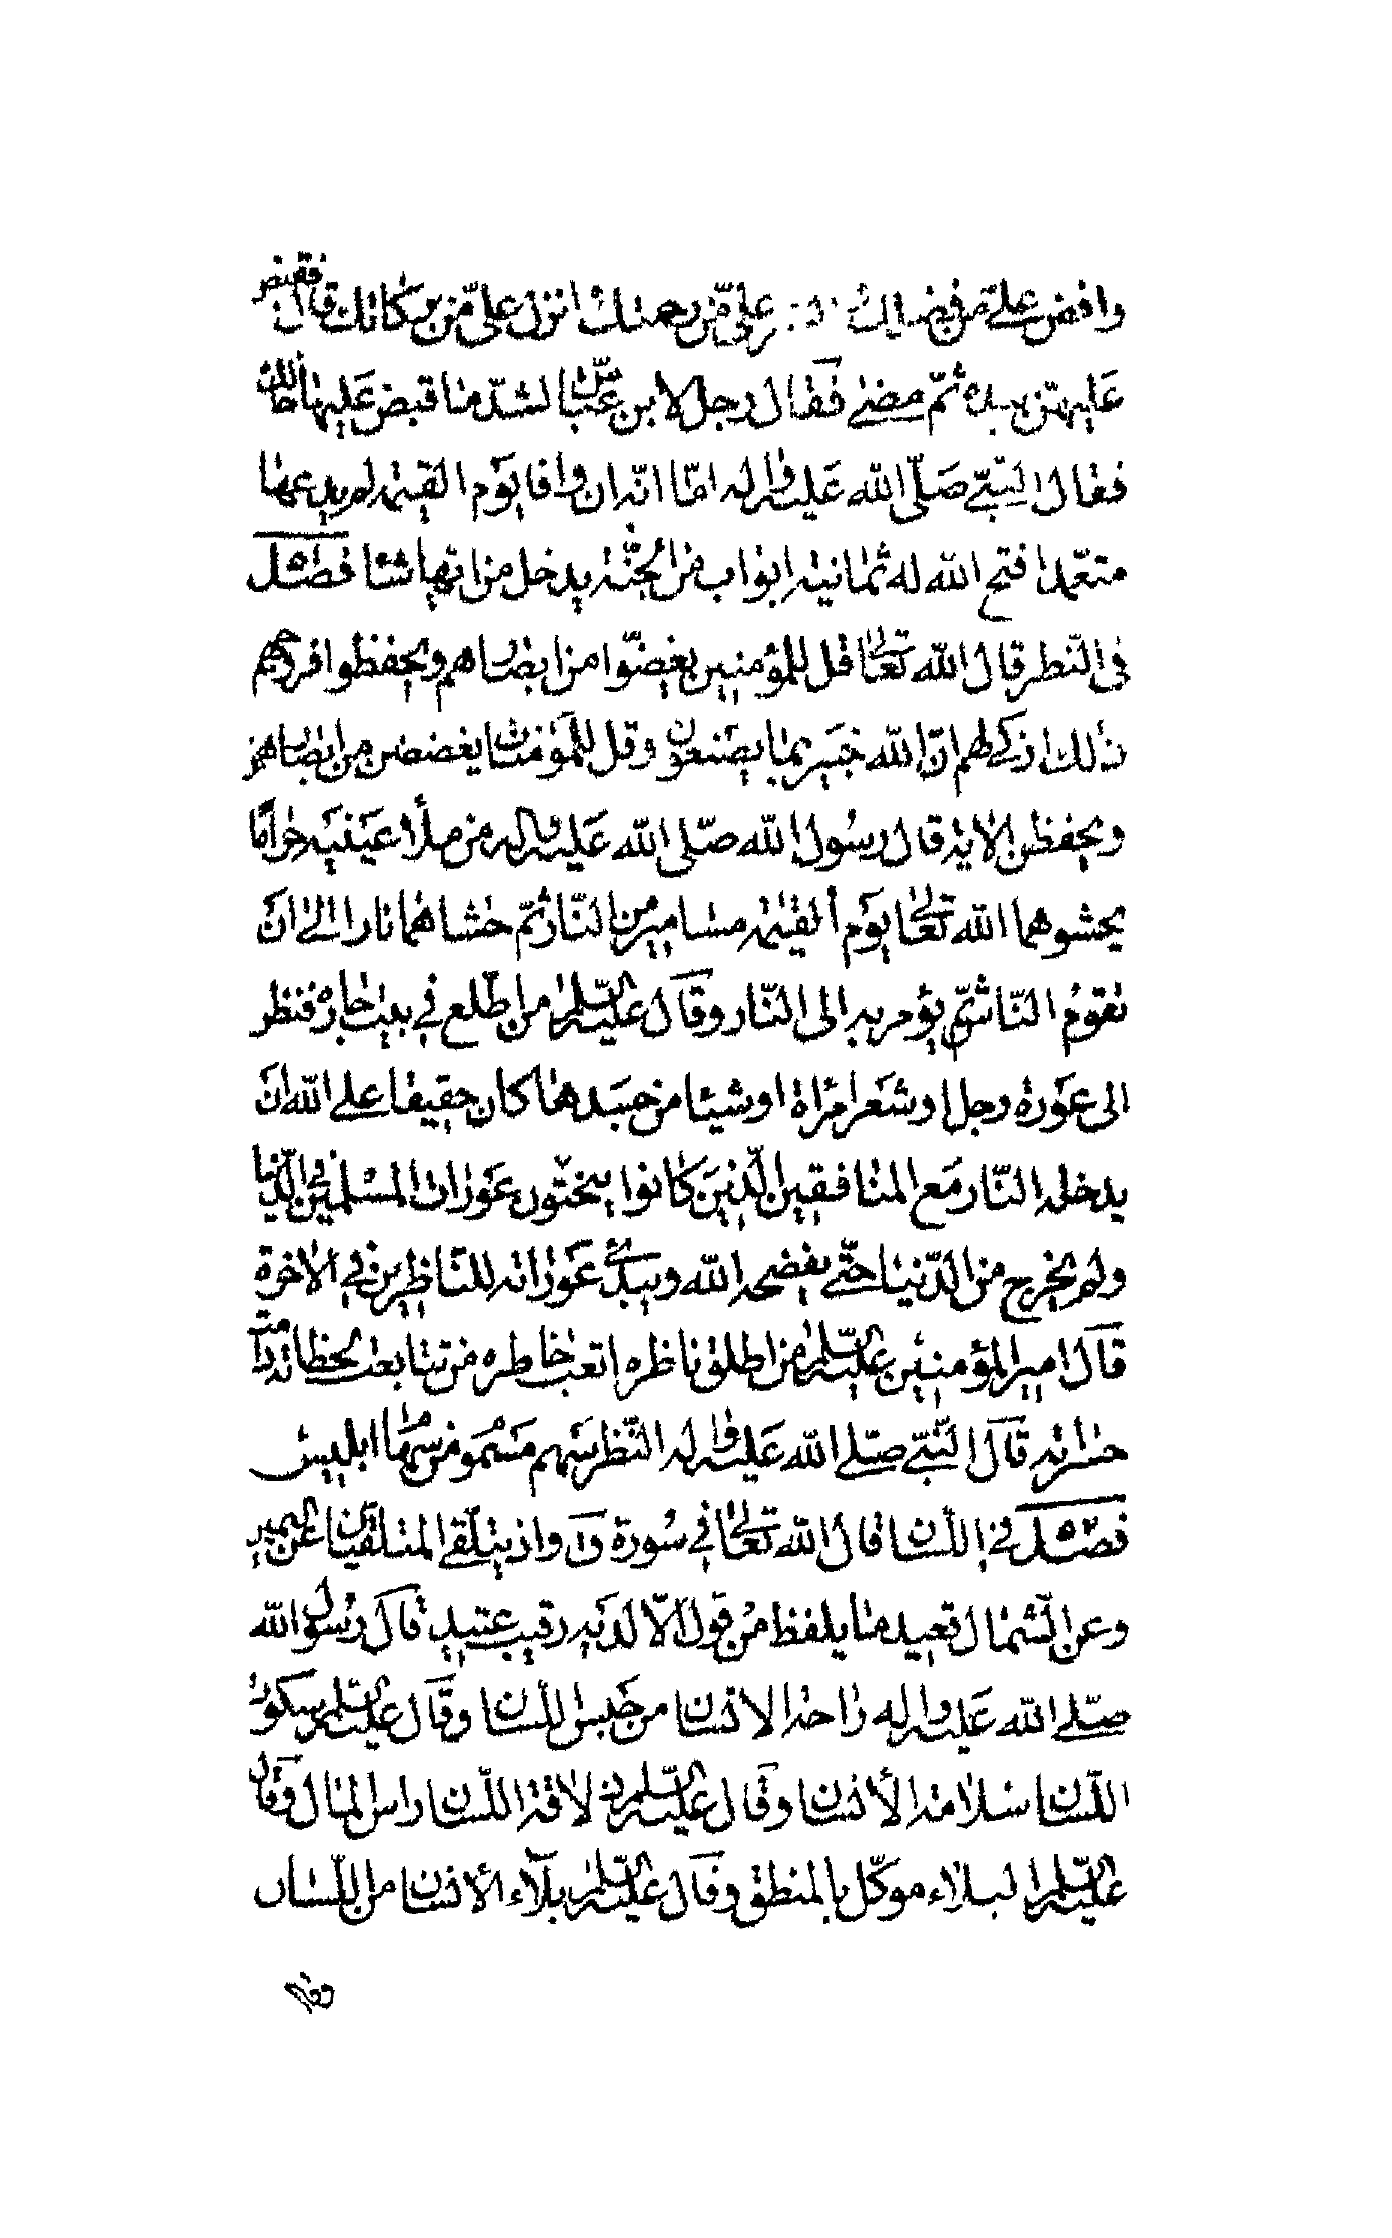 وافض علىّ من فضلك وانشر علىّ من رحمتك وانزل علىّ من بركاتك قال فقبض
عليهنّ بيده ثمّ مضى فقال رجل لابن عبّاس ما اشدّ ما قبض عليها خالك
فقال النبىّ صلّى الله عليه واله امّا انّه ان وافا يوم القيمة لم يدعها
متعمّدا فتح الله له ثمانية ابواب من الجنّة يدخل من ايّها شاء فصل
فى النّظر قال الله تعالى قل للمؤمنين يغضّوا من ابصارهم ويحفظوا فروجهم
ذلك ازكى لهم انّ الله خبير بما يصنعون وقل للمؤمنات يغضضن من ابصارهنّ
ويحفظن الاية قال رسول الله صلّى الله عليه واله من ملأ عينيه حراما
يحشوهما الله تعالى يوم القيمة مسامير من النّار ثمّ حشاهما نارا الى ان
تقوم النّاس ثمّ يؤمر به الى النّار وقال عليه السّلم من اطّلع فى بيت جاره فنظر
الى عورة رجل او شعر امراة او شيئا من جسدها كان حقيقا على الله ان
يدخله النّار مع المنافقين الّذين كانوا يبحثون عورات المسلمين فى الدّنيا
ولم يخرج من الدّنيا حتّى يفضحه الله ويبدى عوراته للنّاظرين فى الاخرة
قال امير المؤمنين عليه السّلم من اطلق ناظره اتعب خاطره من تتابعت لحظاته دامت
حسراته قال النّبىّ صلّى الله عليه واله النّظر سهم مسموم من سهام ابليس
فصل فى اللّسان قال الله تعالى فى سورة ق واذ يتلقّى المتلقّيان عن اليمين
وعن الشّمال قعيد ما يلفظ من قول الّا لديه رقيب عتيد قال رسول الله
صلّى الله عليه واله راحة الانسان من حبس اللّسان وقال عليه السّلم سكوت
اللّسان سلامة الأنسان وقال عليه السّلم ذلاقة اللّسان راس المال وقال
عليه السّلم البلاء موكّل بالمنطق وقال عليه السّلم بلاء الأنسان من اللّسان
وقال